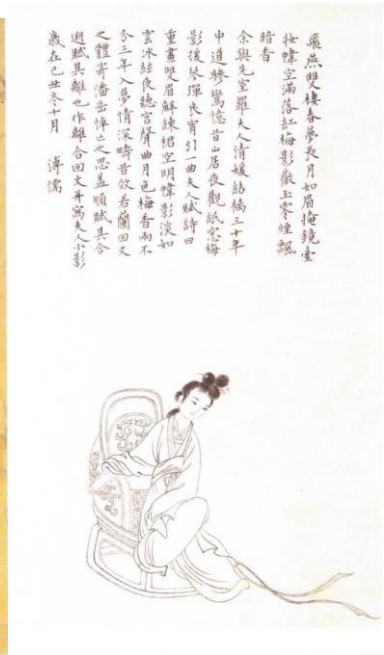 飛燕雙棲春夢長月如眉掩鏡臺
妝幃空滿落紅梅影徽玉零煙飄
暗香
余與先室羅夫人清媛結褵三十年
中道驂鸞憶昔山居夜觀紙窗梅
影援琴彈良宵引一曲夫人賦詩曰
重畫雙眉解練裙空明幃影淡如
雲冰絃夜聽宮聲曲月色梅香兩不
分三年入夢情深疇昔效若蘭回文
之體寄潘岳悼亡之思蓋順賦其合
迴賦其離也作離合回文并寫夫人小影
歲在己丑冬十月 溥儒